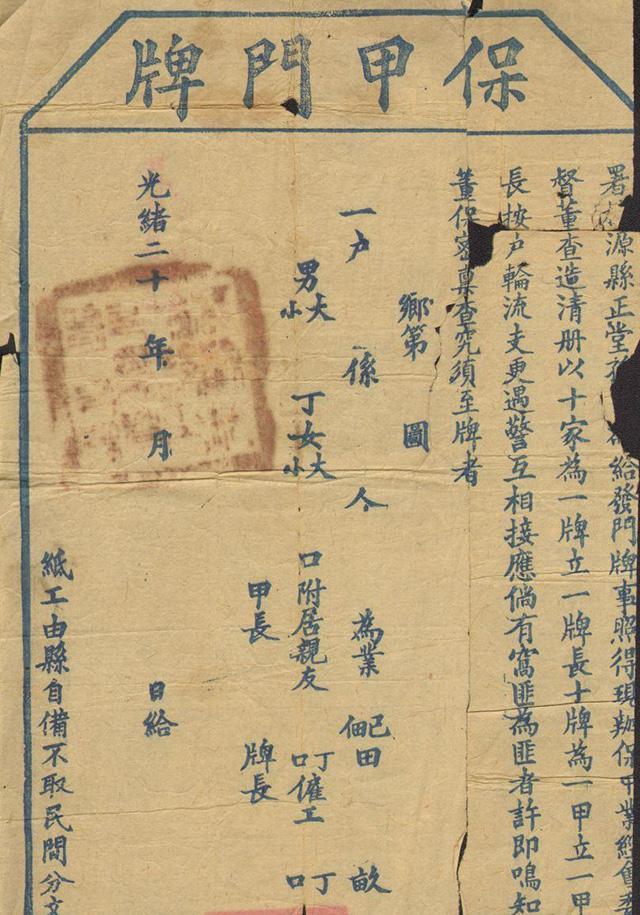 保甲門牌
署 源縣正堂 給發門牌事照得現辦保甲業經會委
督董查造清册以十家為一牌立一牌長十牌為一甲立一甲
長按戶輪流支更遇警互相接應倘有窩匪為匪者許即鳴知
董保密稟查究須至牌者
鄉第 圖
一戶 係 人 為業 己田 佃 畝
男大小 丁女大小 口附居親友 丁口僱工 丁口
甲長 牌長
光緒二十 年 月 日給
紙工由縣自備不取民間分文